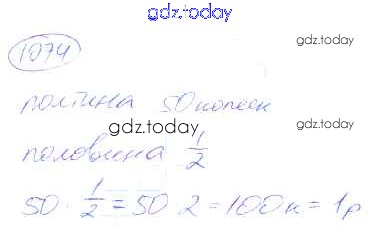 gdz.today
1074
gdz.today
полтина 50 копеек
gdz.today
половина 1/2
gdz.today
50 · 1/2 = 50 2 = 100к = 1р